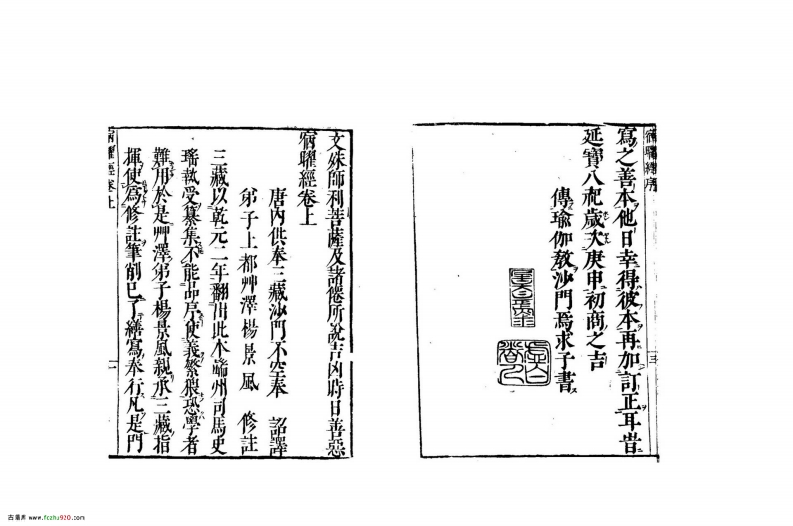 宿曜經序
寫之善本他日幸得彼本再加訂正耳旹
延寶八祀歳次庚申初商之吉
傳瑜伽教沙門焉求子書
三
文殊師利菩薩及諸僊所說吉凶時日善惡
宿曜經卷上
唐内供奉三藏沙門不空奉 詔譯
弟子上都艸澤楊景風 修註
三藏以乾元二年翻出此本端州司馬史
瑤執受纂集不能品序使義繁猥恐學者
難用於是艸澤弟子楊景風親承三藏指
揮使爲修註筆削已了繕寫奉行凡是門
宿曜經卷上
一
www.fozhu920.com